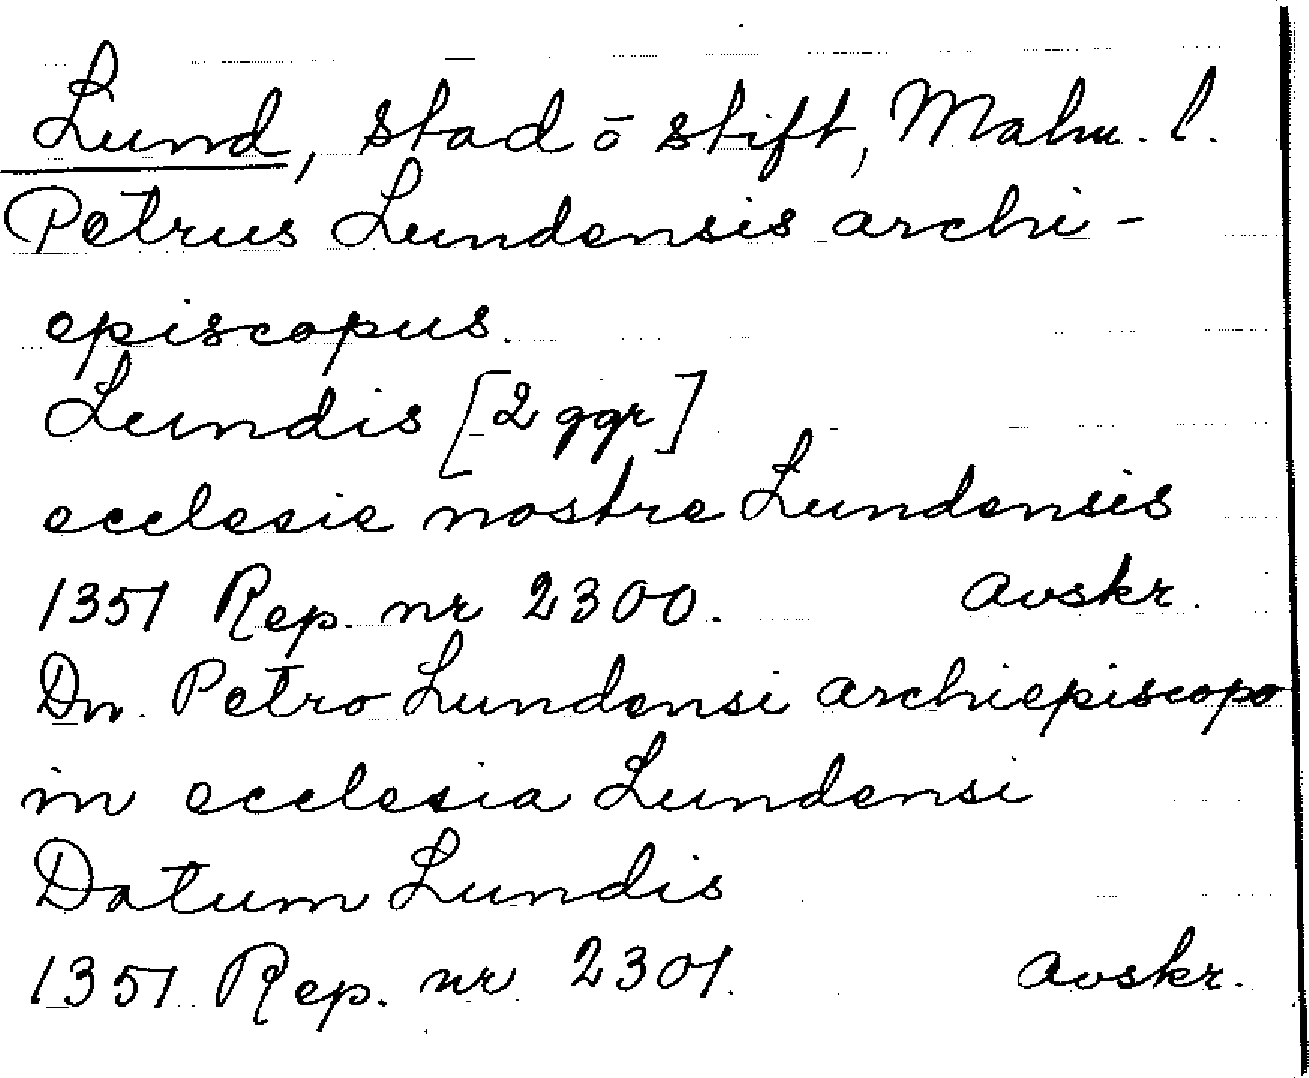 Lund, stad o stift, Malm. l.
Petrus Lundensis archi-
episcopus.
Lundis [2 ggr]
ecclesie nostre Lundensis
1351 Rep. nr 2300. avskr.
Dn. Petro Lundensi archiepiscopo
in ecclesia Lundensi
Datum Lundis
1351 Rep. nr 2301. avskr.